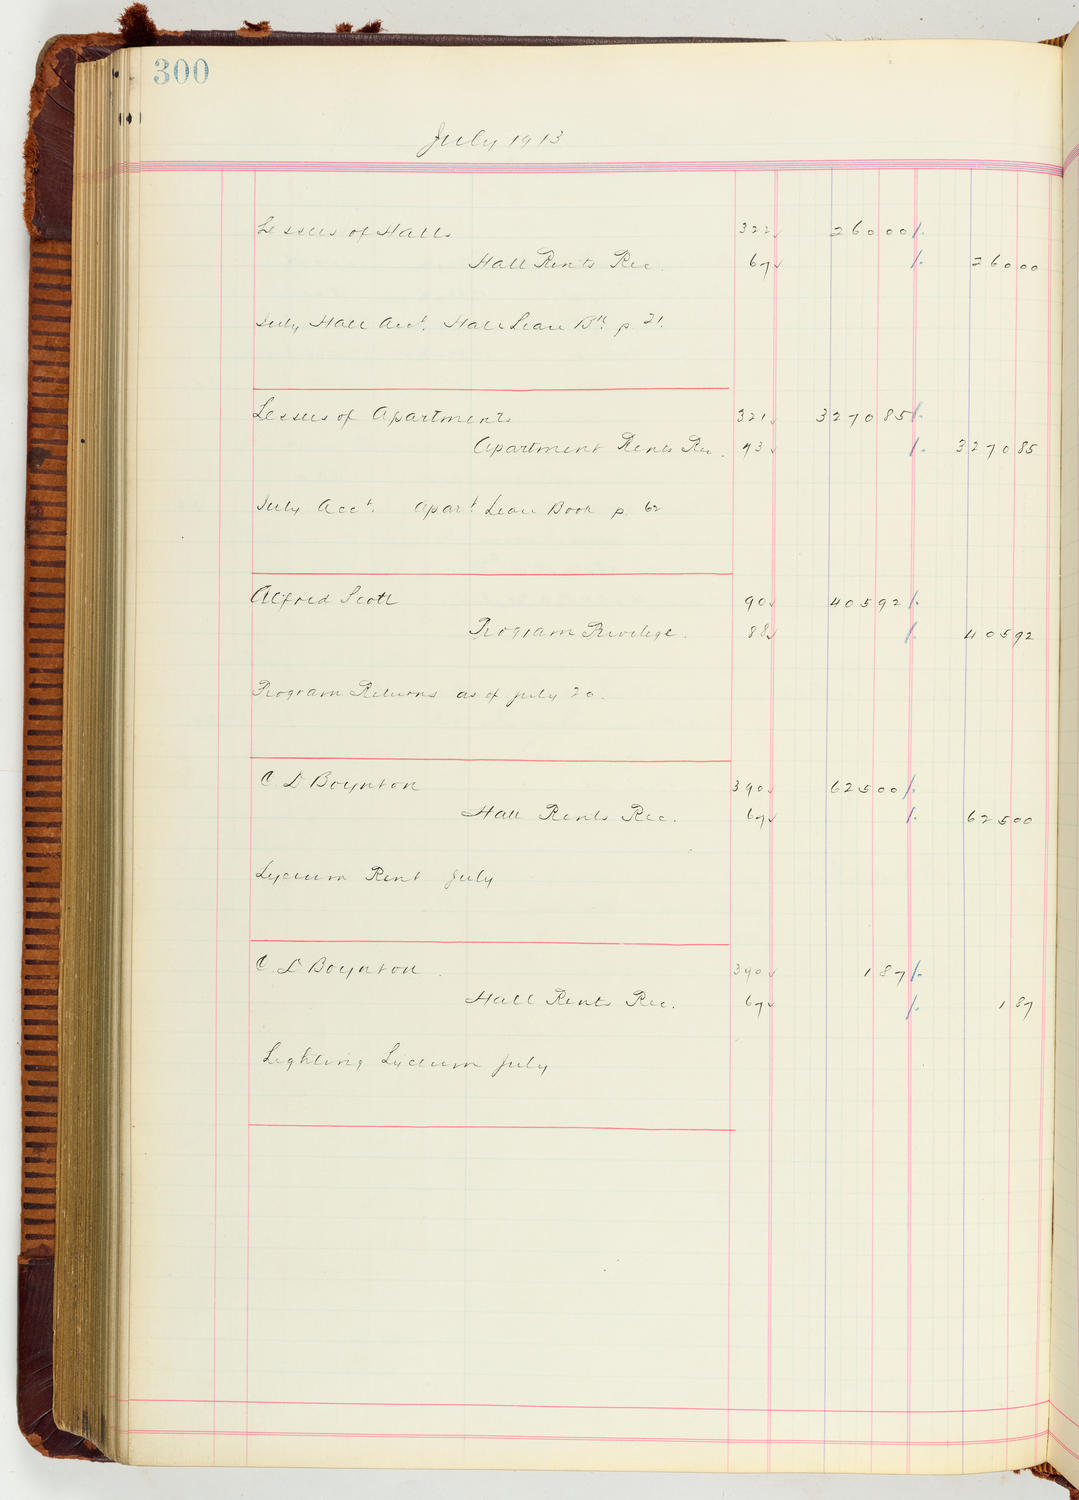 300
July 1913
Lessees of Halls 322 260 00
Hall Rents Rec. 67 260 00
July Hall Acct. Hall Lease Bk p 21.
Lessees of Apartments 321 3270 85
Apartment Rents Rec. 73 3270 85
July Acct. Apart Lease Book p. 62
Alfred Scott 90 405 92
Program Privilege. 88 405 92
Program Returns as of July 20.
C. L Boynton 390 625 00
Hall Rents Rec. 67 625 00
Lyceum Rent July
C. L Boynton 390 1 87
Hall Rents Rec. 67 1 87
Lighting Lyceum July